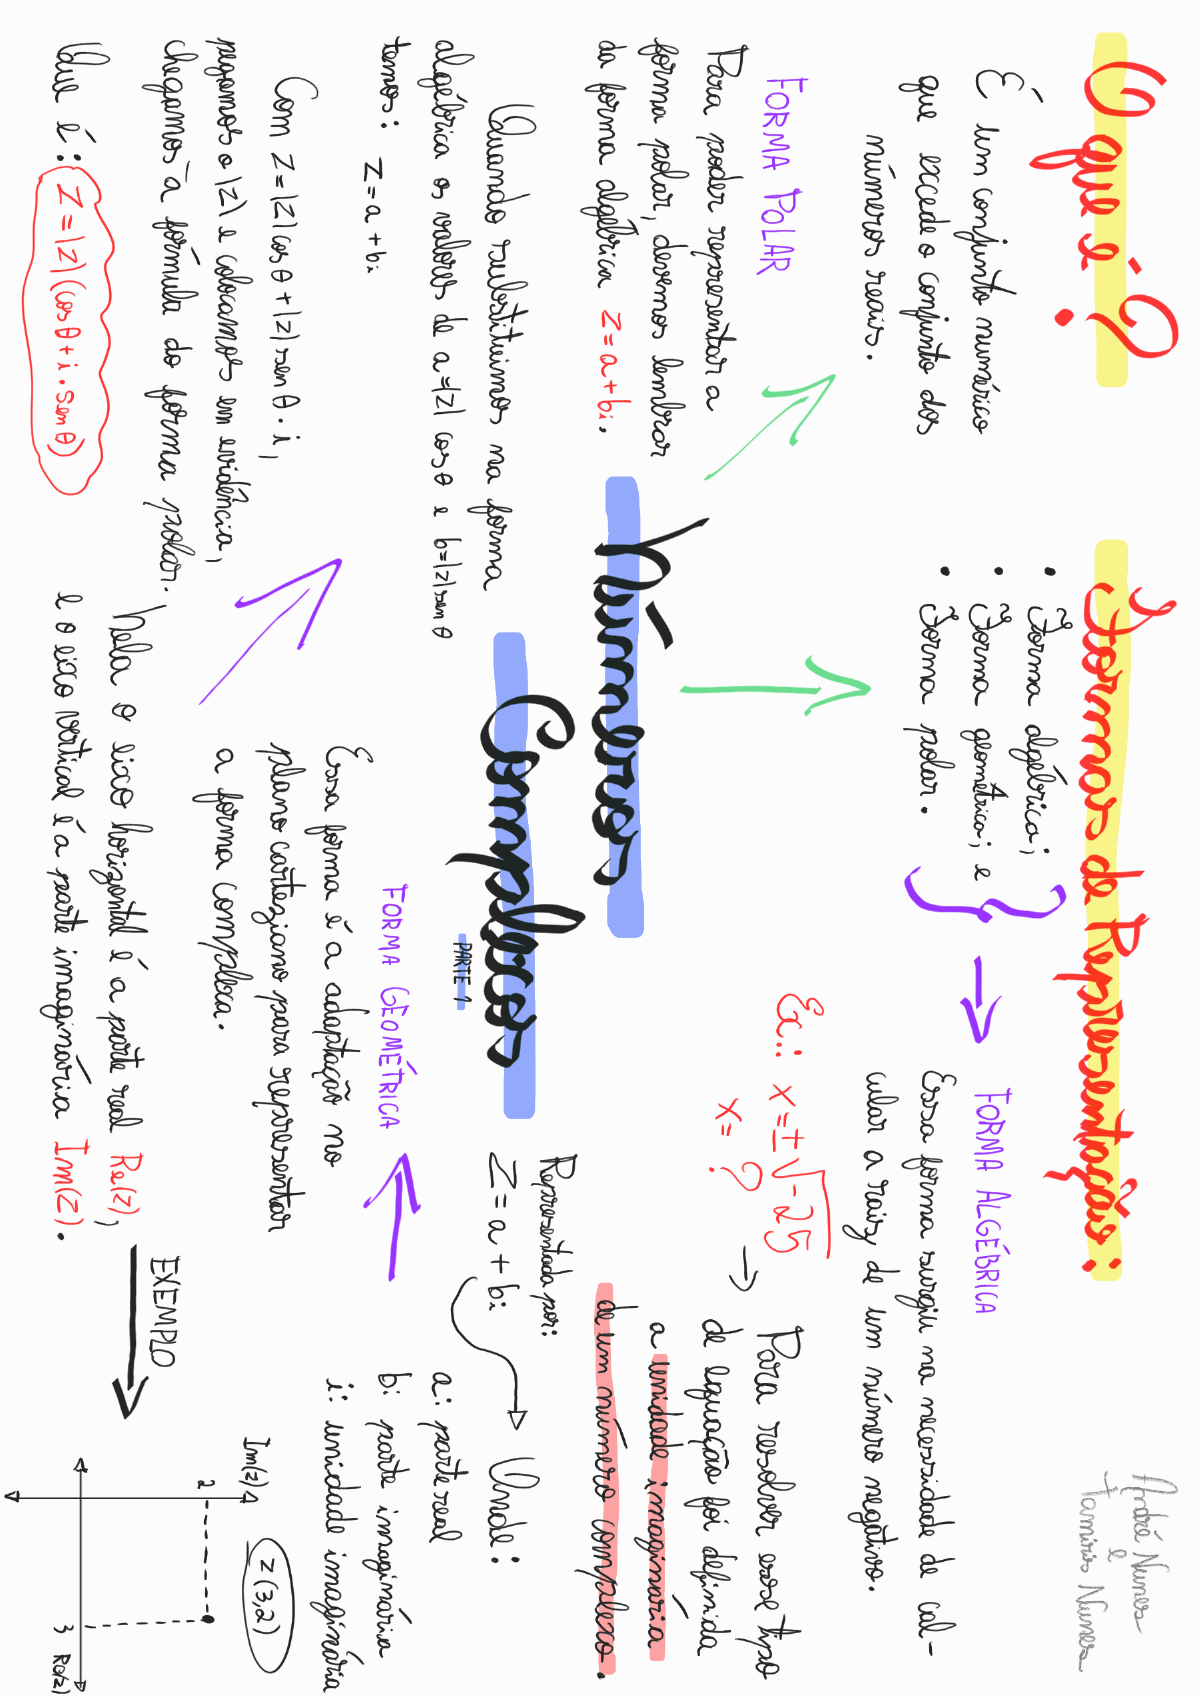 O que é?
É um conjunto numérico
que excede o conjunto dos
números reais.
Formas de Representação:
• Forma algébrica;
• Forma geométrica; e
• Forma polar.
André Nunes
e
Tamiris Nunes
FORMA ALGÉBRICA
Essa forma surgiu na necessidade de cal-
cular a raiz de um número negativo.
Ex.: x=±√-25
x= ?
Para resolver esse tipo
de equação foi definida
a unidade imaginária
de um número complexo.
Representada por:
Z = a + bi
Onde:
a: parte real
b: parte imaginária
i: unidade imaginária
Números
Complexos
PARTE 1
FORMA POLAR
Para poder representar a
forma polar, devemos lembrar
da forma algébrica z=a+bi.
Quando substituimos na forma
algébrica os valores de a=|z| cosθ e b=|z| senθ
temos: z=a+bi
Com z=|z|cosθ+|z|senθ.i,
pegamos o |z| e colocamos em evidência,
chegamos à fórmula do forma polar.
Que é: z=|z|(cosθ+i.senθ)
FORMA GEOMÉTRICA
Essa forma é a adaptação no
plano cartesiano para representar
a forma complexa.
Nela o eixo horizontal é a parte real Re(z),
e o eixo vertical é a parte imaginária Im(z).
EXEMPLO
Im(z)
2
z(3,2)
3
Re(z)